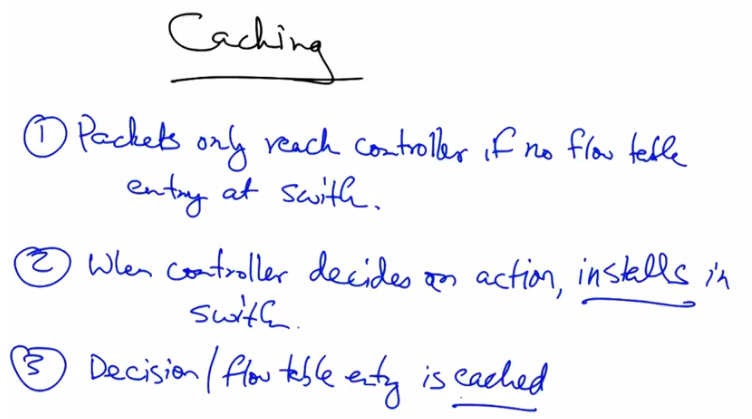 Caching
① Packets only reach controller if no flow table
entry at switch.
② When controller decides on action, installs in
switch.
③ Decision/flow table entry is cached